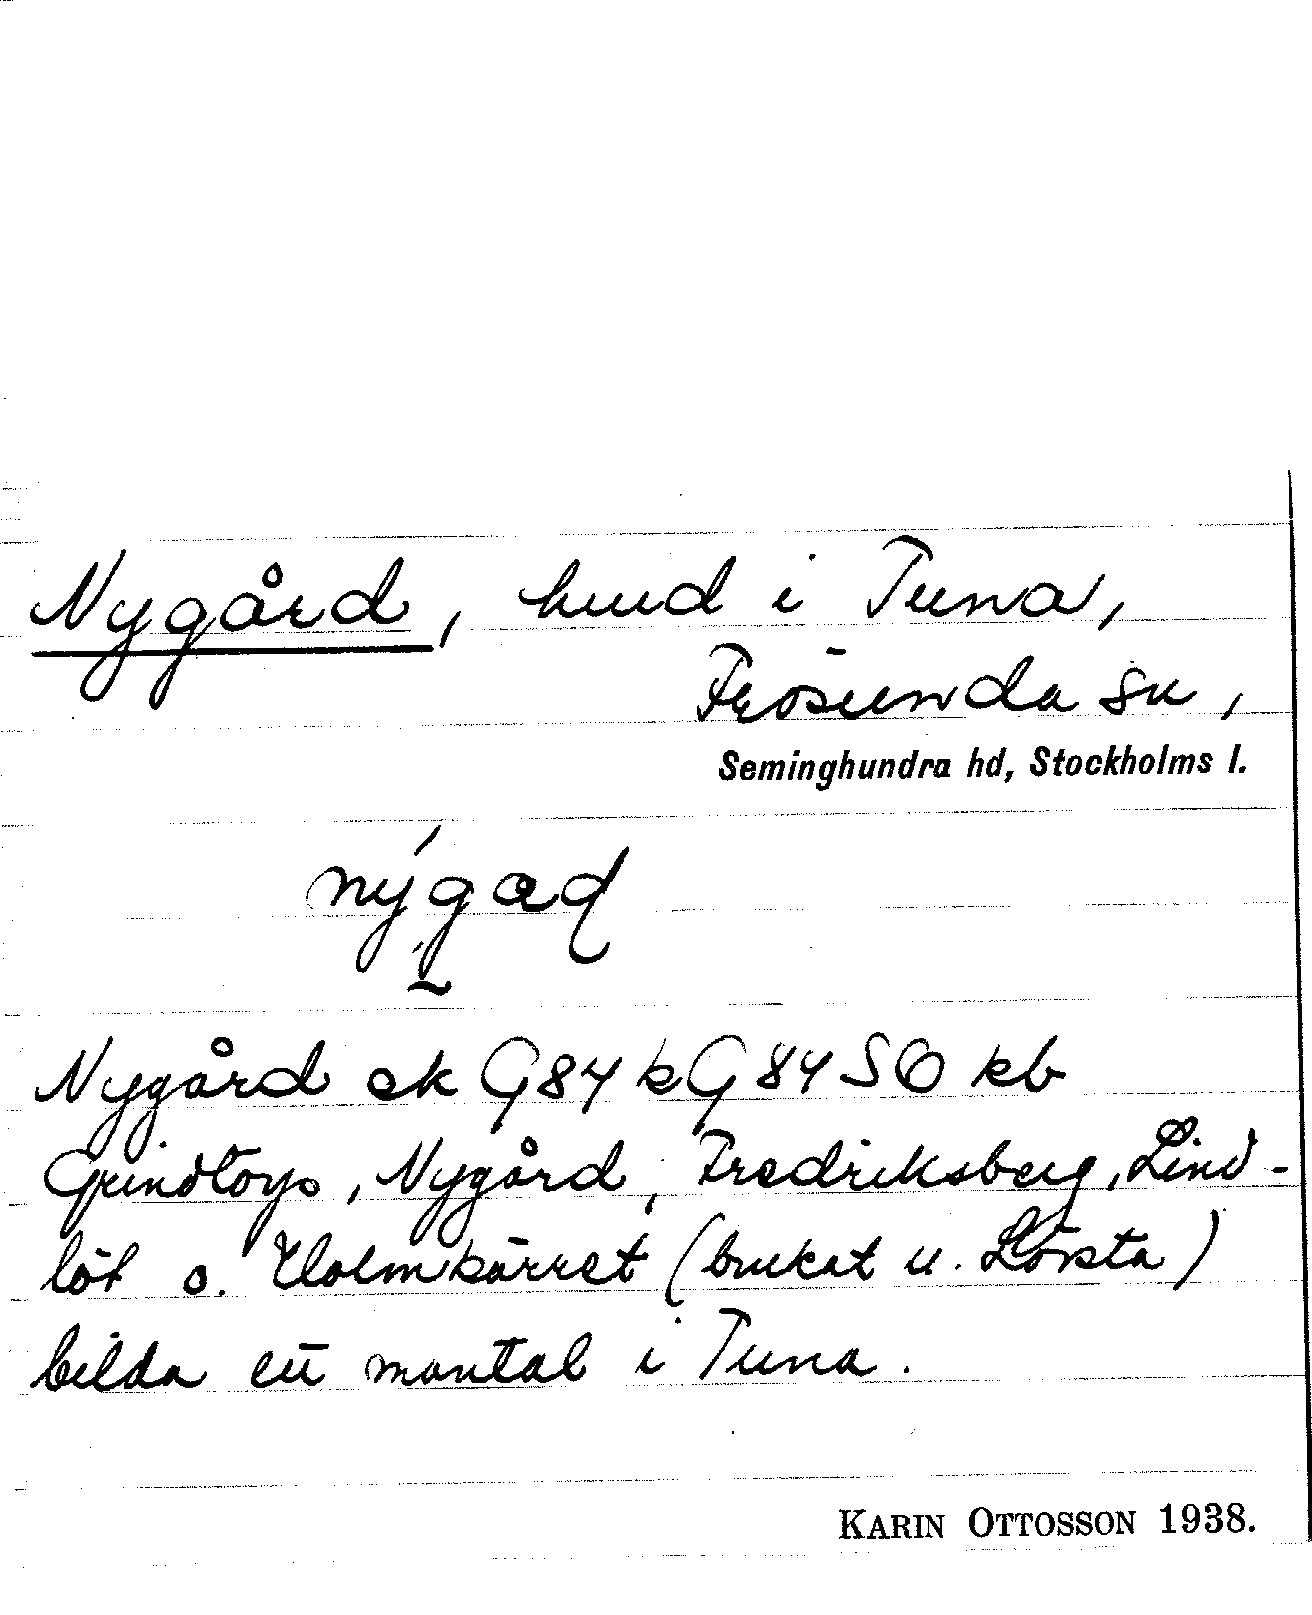 Nygård, hmd i Tuna,
Frösunda sn,
Seminghundra hd, Stockholms l.
nýgaɖ
Nygård ek G84 kG84 SO kb
Grindtorp, Nygård, Fredriksberg, Lind-
löt o. Holmkärret (brukat u. Lövsta)
bilda ett mantal i Tuna.
KARIN OTTOSSON 1938.